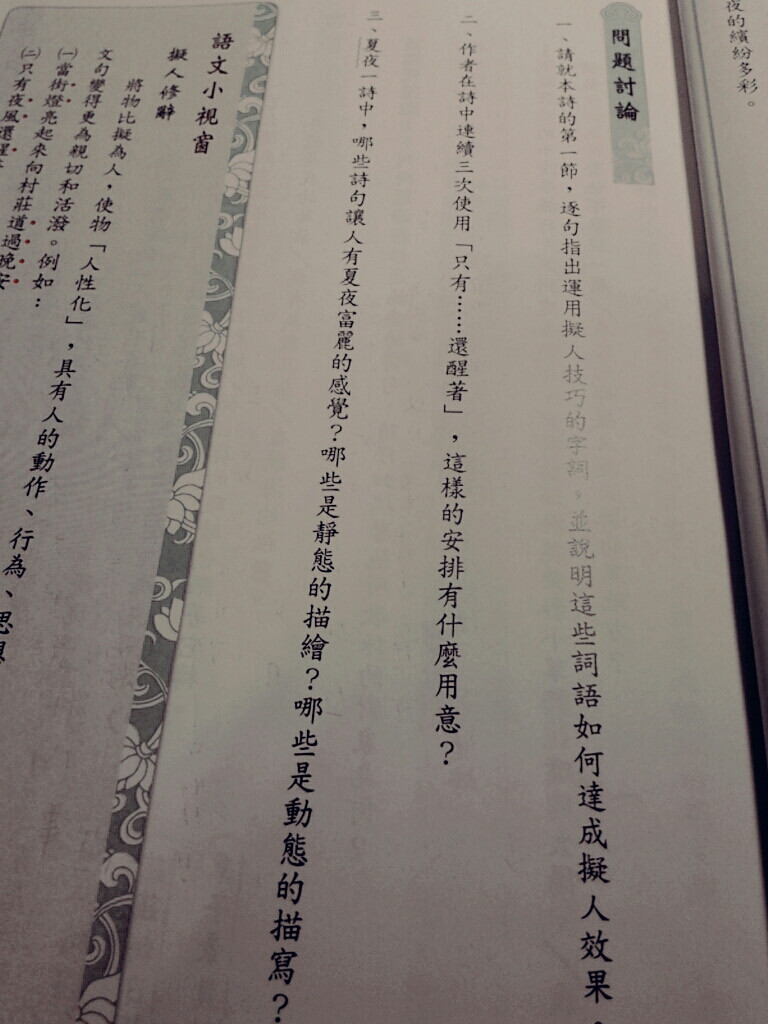 夜的繽紛多彩。
問題討論
一、請就本詩的第一節，逐句指出運用擬人技巧的字詞，並說明這些詞語如何達成擬人效果。
二、作者在詩中連續三次使用「只有……還醒著」，這樣的安排有什麼用意？
三、夏夜一詩中，哪些詩句讓人有夏夜富麗的感覺？哪些是靜態的描繪？哪些是動態的描寫？
語文小視窗
擬人修辭
將物比擬為人，使物「人性化」，具有人的動作、行為、思想
文句變得更為親切和活潑。例如：
㈠當街燈亮起來向村莊道過晚安
㈡只有夜風還醒